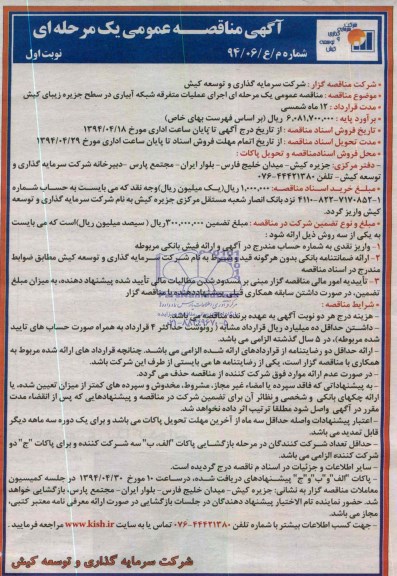 آگهی مناقصه عمومی یک مرحله ای
شماره م/ع/۹۴/۰۶
نوبت اول
• شرکت مناقصه گزار: شرکت سرمایه گذاری و توسعه کیش
• موضوع مناقصه: مناقصه عمومی یک مرحله ای اجرای عملیات متفرقه شبکه آبیاری در سطح جزیره زیبای کیش
• مدت قرارداد: ۱۲ ماه شمسی
• برآورد پایه: ۶,۰۸۱,۷۰۰,۰۰۰ ریال (بر اساس فهرست بهای خاص)
• تاریخ فروش اسناد مناقصه: از تاریخ درج آگهی تا پایان ساعت اداری مورخ ۱۳۹۴/۰۴/۱۸
• مدت تحویل اسناد مناقصه: از تاریخ اتمام مهلت فروش اسناد تا پایان ساعت اداری مورخ ۱۳۹۴/۰۴/۲۹
• محل فروش اسنادمناقصه و تحویل پاکات:
- دفتر مرکزی: جزیره کیش- میدان خلیج فارس- بلوار ایران- مجتمع پارس -دبیرخانه شرکت سرمایه گذاری و
توسعه کیش- تلفن ۴۴۴۲۱۳۸۰-۰۷۶
• مبلغ خرید اسناد مناقصه: ۱,۰۰۰,۰۰۰ ریال(یک میلیون ریال)وجه نقد که می بایست به حساب شماره
۱-۷۱۷۰۸۵۲-۸۲۲-۴۱۱۰ نزد بانک انصار شعبه مستقل مرکزی جزیره کیش به نام شرکت سرمایه گذاری و توسعه
کیش واریز گردد.
• مبلغ و نوع تضمین شرکت در مناقصه: مبلغ تضمین ۳۰۰,۰۰۰,۰۰۰ ریال ( سیصد میلیون ریال)است که می بایست
به یکی از سه روش ذیل ارائه شود:
۱- واریز نقدی به شماره حساب مندرج در آگهی و ارائه فیش بانکی مربوطه
۲- ارائه ضمانتنامه بانکی بدون هرگونه قید و شرط به نام شرکت سرمایه گذاری و توسعه کیش مطابق ضوابط
مندرج در اسناد مناقصه
۳- تأییدیه امور مالی مناقصه گزار مبنی بر مسدود شدن مطالبات مالی تأیید شده پیشنهاد دهنده، به میزان مبلغ
تضمین، در صورت داشتن سابقه همکاری قبلی پیشنهاددهنده با مناقصه گزار
• شرایط مناقصه:
- هزینه درج هر دو نوبت آگهی به عهده برنده مناقصه می باشد.
- داشتن حداقل ده میلیارد ریال قرارداد مشابه (رونوشت حداکثر ۴ قرارداد به همراه صورت حساب های تایید
شده مربوطه)، در ۵ سال گذشته الزامی می باشد.
- ارائه حداقل دو رضایتنامه از قراردادهای ارائه شده الزامی می باشد. چنانچه قرارداد های ارائه شده مربوط به
همکاری با مناقصه گزار است، یکی از رضایتنامه ها می بایستی از طرف این شرکت باشد.
- در صورت عدم ارائه موارد فوق شرکت کننده از مناقصه حذف می گردد.
- به پیشنهاداتی که فاقد سپرده یا امضاء غیر مجاز، مشروط، مخدوش و سپرده های کمتر از میزان تعیین شده، یا
ارائه چکهای بانکی و شخصی و نظائر آن برای تضمین شرکت در مناقصه و پیشنهادهایی که پس از انقضاء مدت
مقرر در آگهی واصل شود مطلقا ترتیب اثر داده نخواهد شد.
- اعتبار پیشنهادات واصله حداقل سه ماه از آخرین مهلت تحویل پاکات می باشد و برای یک دوره سه ماهه دیگر
قابل تمدید می باشد.
- حداقل تعداد شرکت کنندگان در مرحله بازگشایی پاکات "الف، ب" سه شرکت کننده و برای پاکات "ج" دو
شرکت کننده الزامی می باشد.
- سایر اطلاعات و جزئیات در اسناد مناقصه درج گردیده است.
- پاکات "الف"و"ب"و"ج" پیشنهادهای دریافت شده، در ساعت ۱۰ مورخ ۱۳۹۴/۰۴/۳۰ در جلسه کمیسیون
معاملات مناقصه گزار به نشانی: جزیره کیش- میدان خلیج فارس- بلوار ایران- مجتمع پارس، بازگشایی خواهد
شد. حضور نماینده تام الاختیار پیشنهاد دهندگان در جلسات بازگشایی در صورت ارائه معرفی نامه معتبر کتبی،
مجاز می باشد.
- جهت کسب اطلاعات بیشتر با شماره تلفن ۴۴۴۲۱۳۸۰-۰۷۶ تماس یا به سایت www.kish.ir مراجعه فرمایید.
شرکت سرمایه گذاری و توسعه کیش